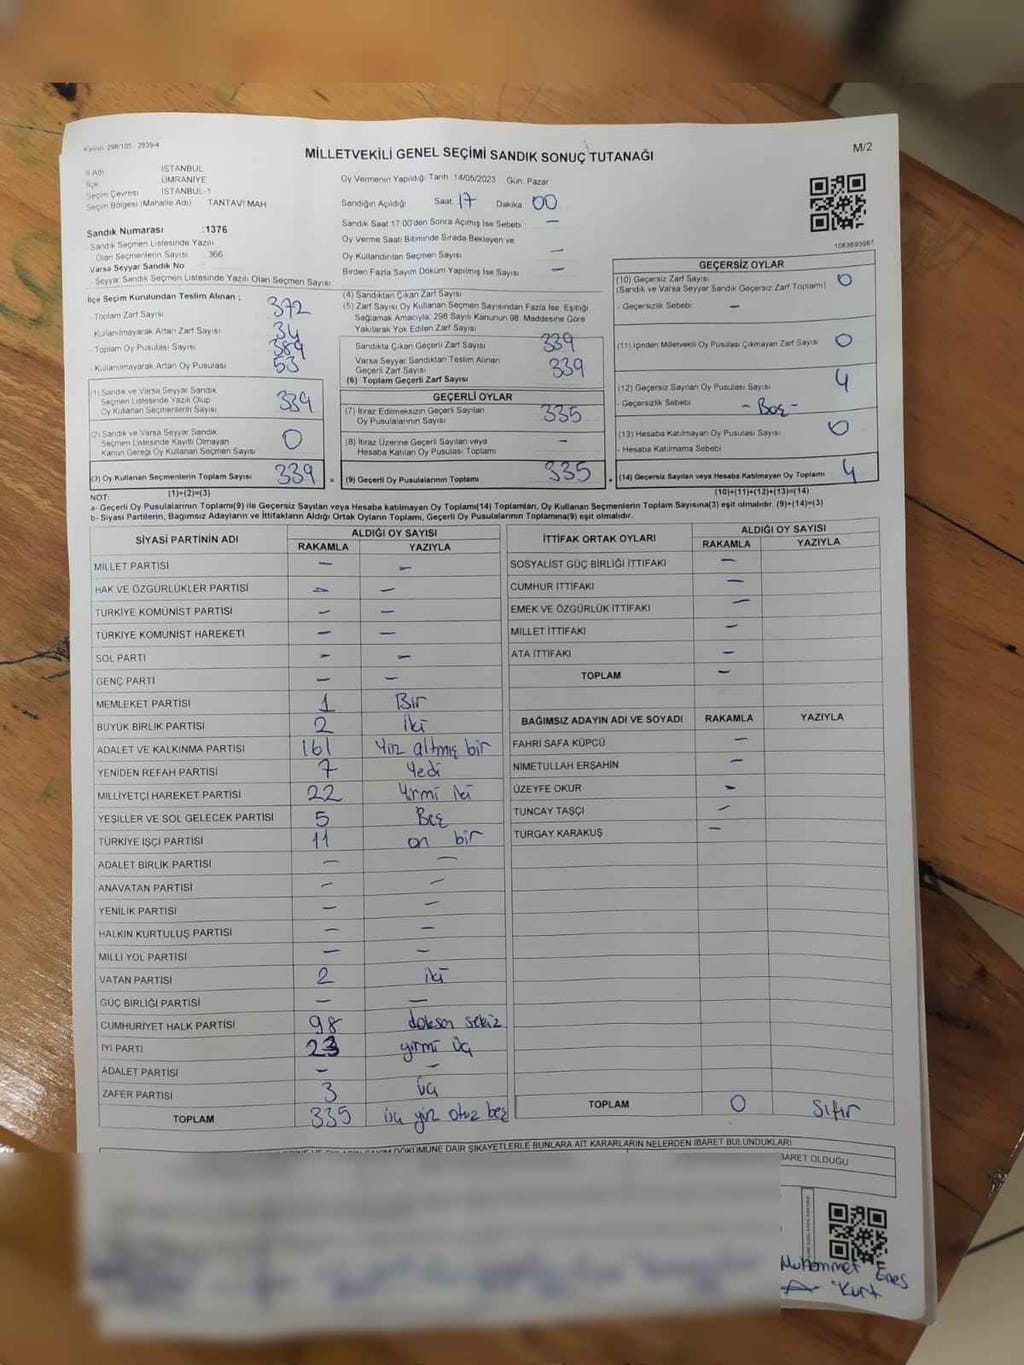 Kanun 298/105 2839/4
MİLLETVEKİLİ GENEL SEÇİMİ SANDIK SONUÇ TUTANAĞI
M/2
İl Adı İSTANBUL
İlçe ÜMRANİYE
Seçim Çevresi İSTANBUL-1
Seçim Bölgesi (Mahalle Adı) TANTAVİ MAH
Sandık Numarası :1376
Sandık Seçmen Listesinde Yazılı
Olan Seçmenlerin Sayısı : 366
Varsa Seyyar Sandık No :
- Seyyar Sandık Seçmen Listesinde Yazılı Olan Seçmen Sayısı:
Oy Vermenin Yapıldığı Tarih 14/05/2023 Gün: Pazar
Sandığın Açıldığı Saat 17 Dakika 00
Sandık Saat 17:00'den Sonra Açılmış İse Sebebi —
Oy Verme Saati Bitiminde Sırada Bekleyen ve
Oy Kullandırılan Seçmen Sayısı —
Birden Fazla Sayım Döküm Yapılmış İse Sayısı —
1083693987
İlçe Seçim Kurulundan Teslim Alınan ;
- Toplam Zarf Sayısı 372
- Kullanılmayarak Artan Zarf Sayısı 34
- Toplam Oy Pusulası Sayısı 389
- Kullanılmayarak Artan Oy Pusulası 53
(1) Sandık ve Varsa Seyyar Sandık
Seçmen Listesinde Yazılı Olup
Oy Kullanan Seçmenlerin Sayısı 339
(2) Sandık ve Varsa Seyyar
Sandık Seçmen Listesinde Kayıtlı Olmayan
Kanun Gereği Oy Kullanan Seçmen Sayısı 0
(3) Oy Kullanan Seçmenlerin Toplam Sayısı 339
(1)+(2)=(3)
(4) Sandıktan Çıkan Zarf Sayısı
(5) Zarf Sayısı Oy Kullanan Seçmen Sayısından Fazla İse, Eşitliği
Sağlamak Amacıyla, 298 Sayılı Kanunun 98. Maddesine Göre
Yakılarak Yok Edilen Zarf Sayısı
Sandıkta Çıkan Geçerli Zarf Sayısı 339
Varsa Seyyar Sandıktan Teslim Alınan
Geçerli Zarf Sayısı 339
(6) Toplam Geçerli Zarf Sayısı
GEÇERLİ OYLAR
(7) İtiraz Edilmeksizin Geçerli Sayılan
Oy Pusulalarının Sayısı 335
(8) İtiraz Üzerine Geçerli Sayılan veya
Hesaba Katılan Oy Pusulası Toplamı —
(9) Geçerli Oy Pusulalarının Toplamı 335
GEÇERSİZ OYLAR
(10) Geçersiz Zarf Sayısı 0
(Sandık ve Varsa Seyyar Sandık Geçersiz Zarf Toplamı)
- Geçersizlik Sebebi —
(11) İçinden Milletvekili Oy Pusulası Çıkmayan Zarf Sayısı 0
(12) Geçersiz Sayılan Oy Pusulası Sayısı 4
- Geçersizlik Sebebi - Boş -
(13) Hesaba Katılmayan Oy Pusulası Sayısı 0
- Hesaba Katılmama Sebebi
(14) Geçersiz Sayılan veya Hesaba Katılmayan Oy Toplamı 4
(10)+(11)+(12)+(13)=(14)
NOT:
a- Geçerli Oy Pusulalarının Toplamı(9) ile Geçersiz Sayılan veya Hesaba katılmayan Oy Toplamı(14) Toplamları, Oy Kullanan Seçmenlerin Toplam Sayısına(3) eşit olmalıdır. (9)+(14)=(3)
b- Siyasi Partilerin, Bağımsız Adayların ve İttifakların Aldığı Ortak Oyların Toplamı, Geçerli Oy Pusulalarının Toplamına(9) eşit olmalıdır.
SİYASİ PARTİNİN ADI ALDIĞI OY SAYISI
RAKAMLA YAZIYLA
MİLLET PARTİSİ — —
HAK VE ÖZGÜRLÜKLER PARTİSİ — —
TÜRKİYE KOMÜNİST PARTİSİ — —
TÜRKİYE KOMÜNİST HAREKETİ — —
SOL PARTİ — —
GENÇ PARTİ — —
MEMLEKET PARTİSİ 1 Bir
BÜYÜK BİRLİK PARTİSİ 2 İki
ADALET VE KALKINMA PARTİSİ 161 Yüz altmış bir
YENİDEN REFAH PARTİSİ 7 Yedi
MİLLİYETÇİ HAREKET PARTİSİ 22 Yirmi iki
YEŞİLLER VE SOL GELECEK PARTİSİ 5 Beş
TÜRKİYE İŞÇİ PARTİSİ 11 on bir
ADALET BİRLİK PARTİSİ — —
ANAVATAN PARTİSİ — —
YENİLİK PARTİSİ — —
HALKIN KURTULUŞ PARTİSİ — —
MİLLİ YOL PARTİSİ — —
VATAN PARTİSİ 2 iki
GÜÇ BİRLİĞİ PARTİSİ — —
CUMHURİYET HALK PARTİSİ 98 doksan sekiz
İYİ PARTİ 23 yirmi üç
ADALET PARTİSİ — —
ZAFER PARTİSİ 3 üç
TOPLAM 335 üç yüz otuz beş
İTTİFAK ORTAK OYLARI ALDIĞI OY SAYISI
RAKAMLA YAZIYLA
SOSYALİST GÜÇ BİRLİĞİ İTTİFAKI —
CUMHUR İTTİFAKI —
EMEK VE ÖZGÜRLÜK İTTİFAKI —
MİLLET İTTİFAKI —
ATA İTTİFAKI —
TOPLAM —
BAĞIMSIZ ADAYIN ADI VE SOYADI RAKAMLA YAZIYLA
FAHRİ SAFA KÜPCÜ —
NİMETULLAH ERŞAHİN —
ÜZEYFE OKUR —
TUNCAY TAŞÇI —
TURGAY KARAKUŞ —
TOPLAM 0 Sıfır
DÖKÜMÜNE DAİR ŞİKAYETLERLE BUNLARA AİT KARARLARIN NELERDEN İBARET BULUNDUKLARI
BARET OLDUĞU
Muhammet Enes
Kurt